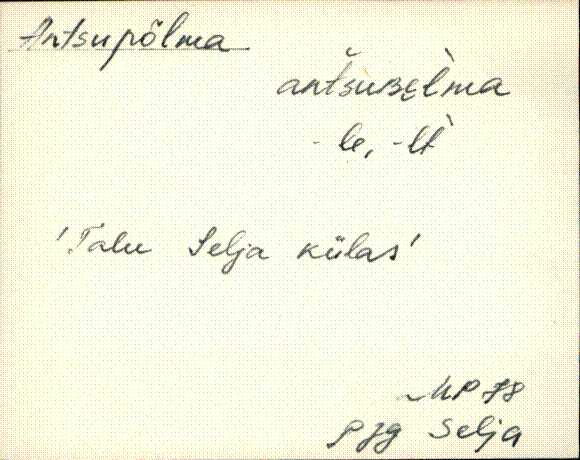 Antsupõlma
antšuʙel̀ma
-le, -lt̀
'Talu Selja külas'
MP 78
PJg Selja